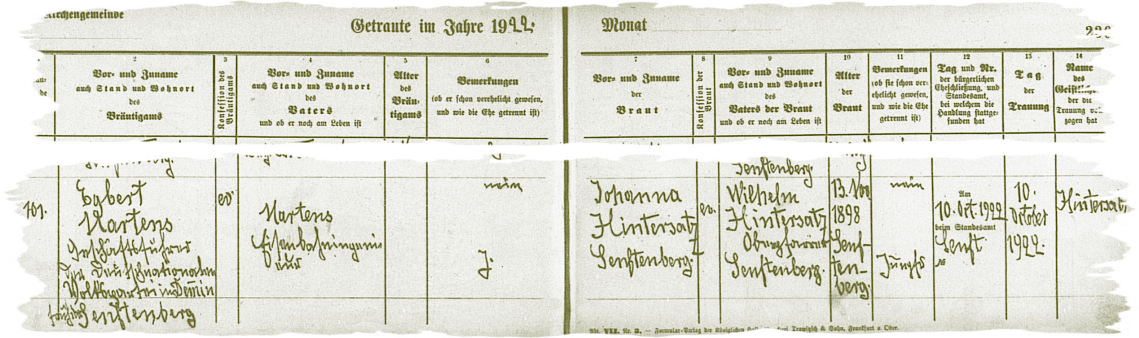 Kirchengemeinde
Getraute im Jahre 1922.
Monat
2
Vor- und Zuname
auch Stand und Wohnort
des
Bräutigams
3
Konfession des
Bräutigams
4
Vor- und Zuname
auch Stand und Wohnort
des
Vaters
und ob er noch am Leben ist
5
Alter
des
Bräu-
tigams
6
Bemerkungen
(ob er schon verehelicht gewesen,
und wie die Ehe
getrennt ist)
7
Vor- und Zuname
der
Braut
8
Konfession der
Braut
9
Vor- und Zuname
auch Stand und Wohnort
des
Vaters der Braut
und ob er noch am Leben ist
10
Alter
der
Braut
11
Bemerkungen
(ob sie schon ver-
ehelicht gewesen,
und wie die Ehe
getrennt ist)
12
Tag und Nr.
der bürgerlichen
Eheschließung, und
Standesamt,
bei welchem die
Handlung stattge-
funden hat
13
Tag
der
Trauung
14
Name
des
der die
Trauung
zogen hat
Senftenberg
101.
Egbert
Martens
Geschäftsführer
der Deutschnationalen
Volkspartei in Demmin
früher Senftenberg
ev
Martens
Eisenbahningeni
eur
nein
J.
Johanna
Hintersatz
Senftenberg.
ev.
Wilhelm
Hintersatz
Oberpfarrer
Senftenberg.
13. Nov
1898
Senf-
ten-
berg.
nein
Jungfr
Am
10. Oct. 1922
beim Standesamt
Senft
№
10.
October
1922.
Hintersatz
VII. Nr. 3. — Formular-Verlag der Königlichen Trowitzsch & Sohn, Frankfurt a. Oder.